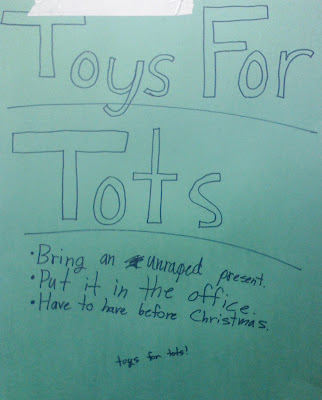 Toys For
Tots
• Bring an unraped present.
• Put it in the office.
• Have to have before Christmas.
toys for tots!